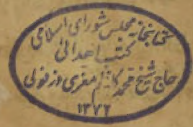 کتابخانهٔ مجلس شورای اسلامی
کتب اهدائی
حاج شیخ محمد کاظم معزی دزفولی
۱۳۷۲